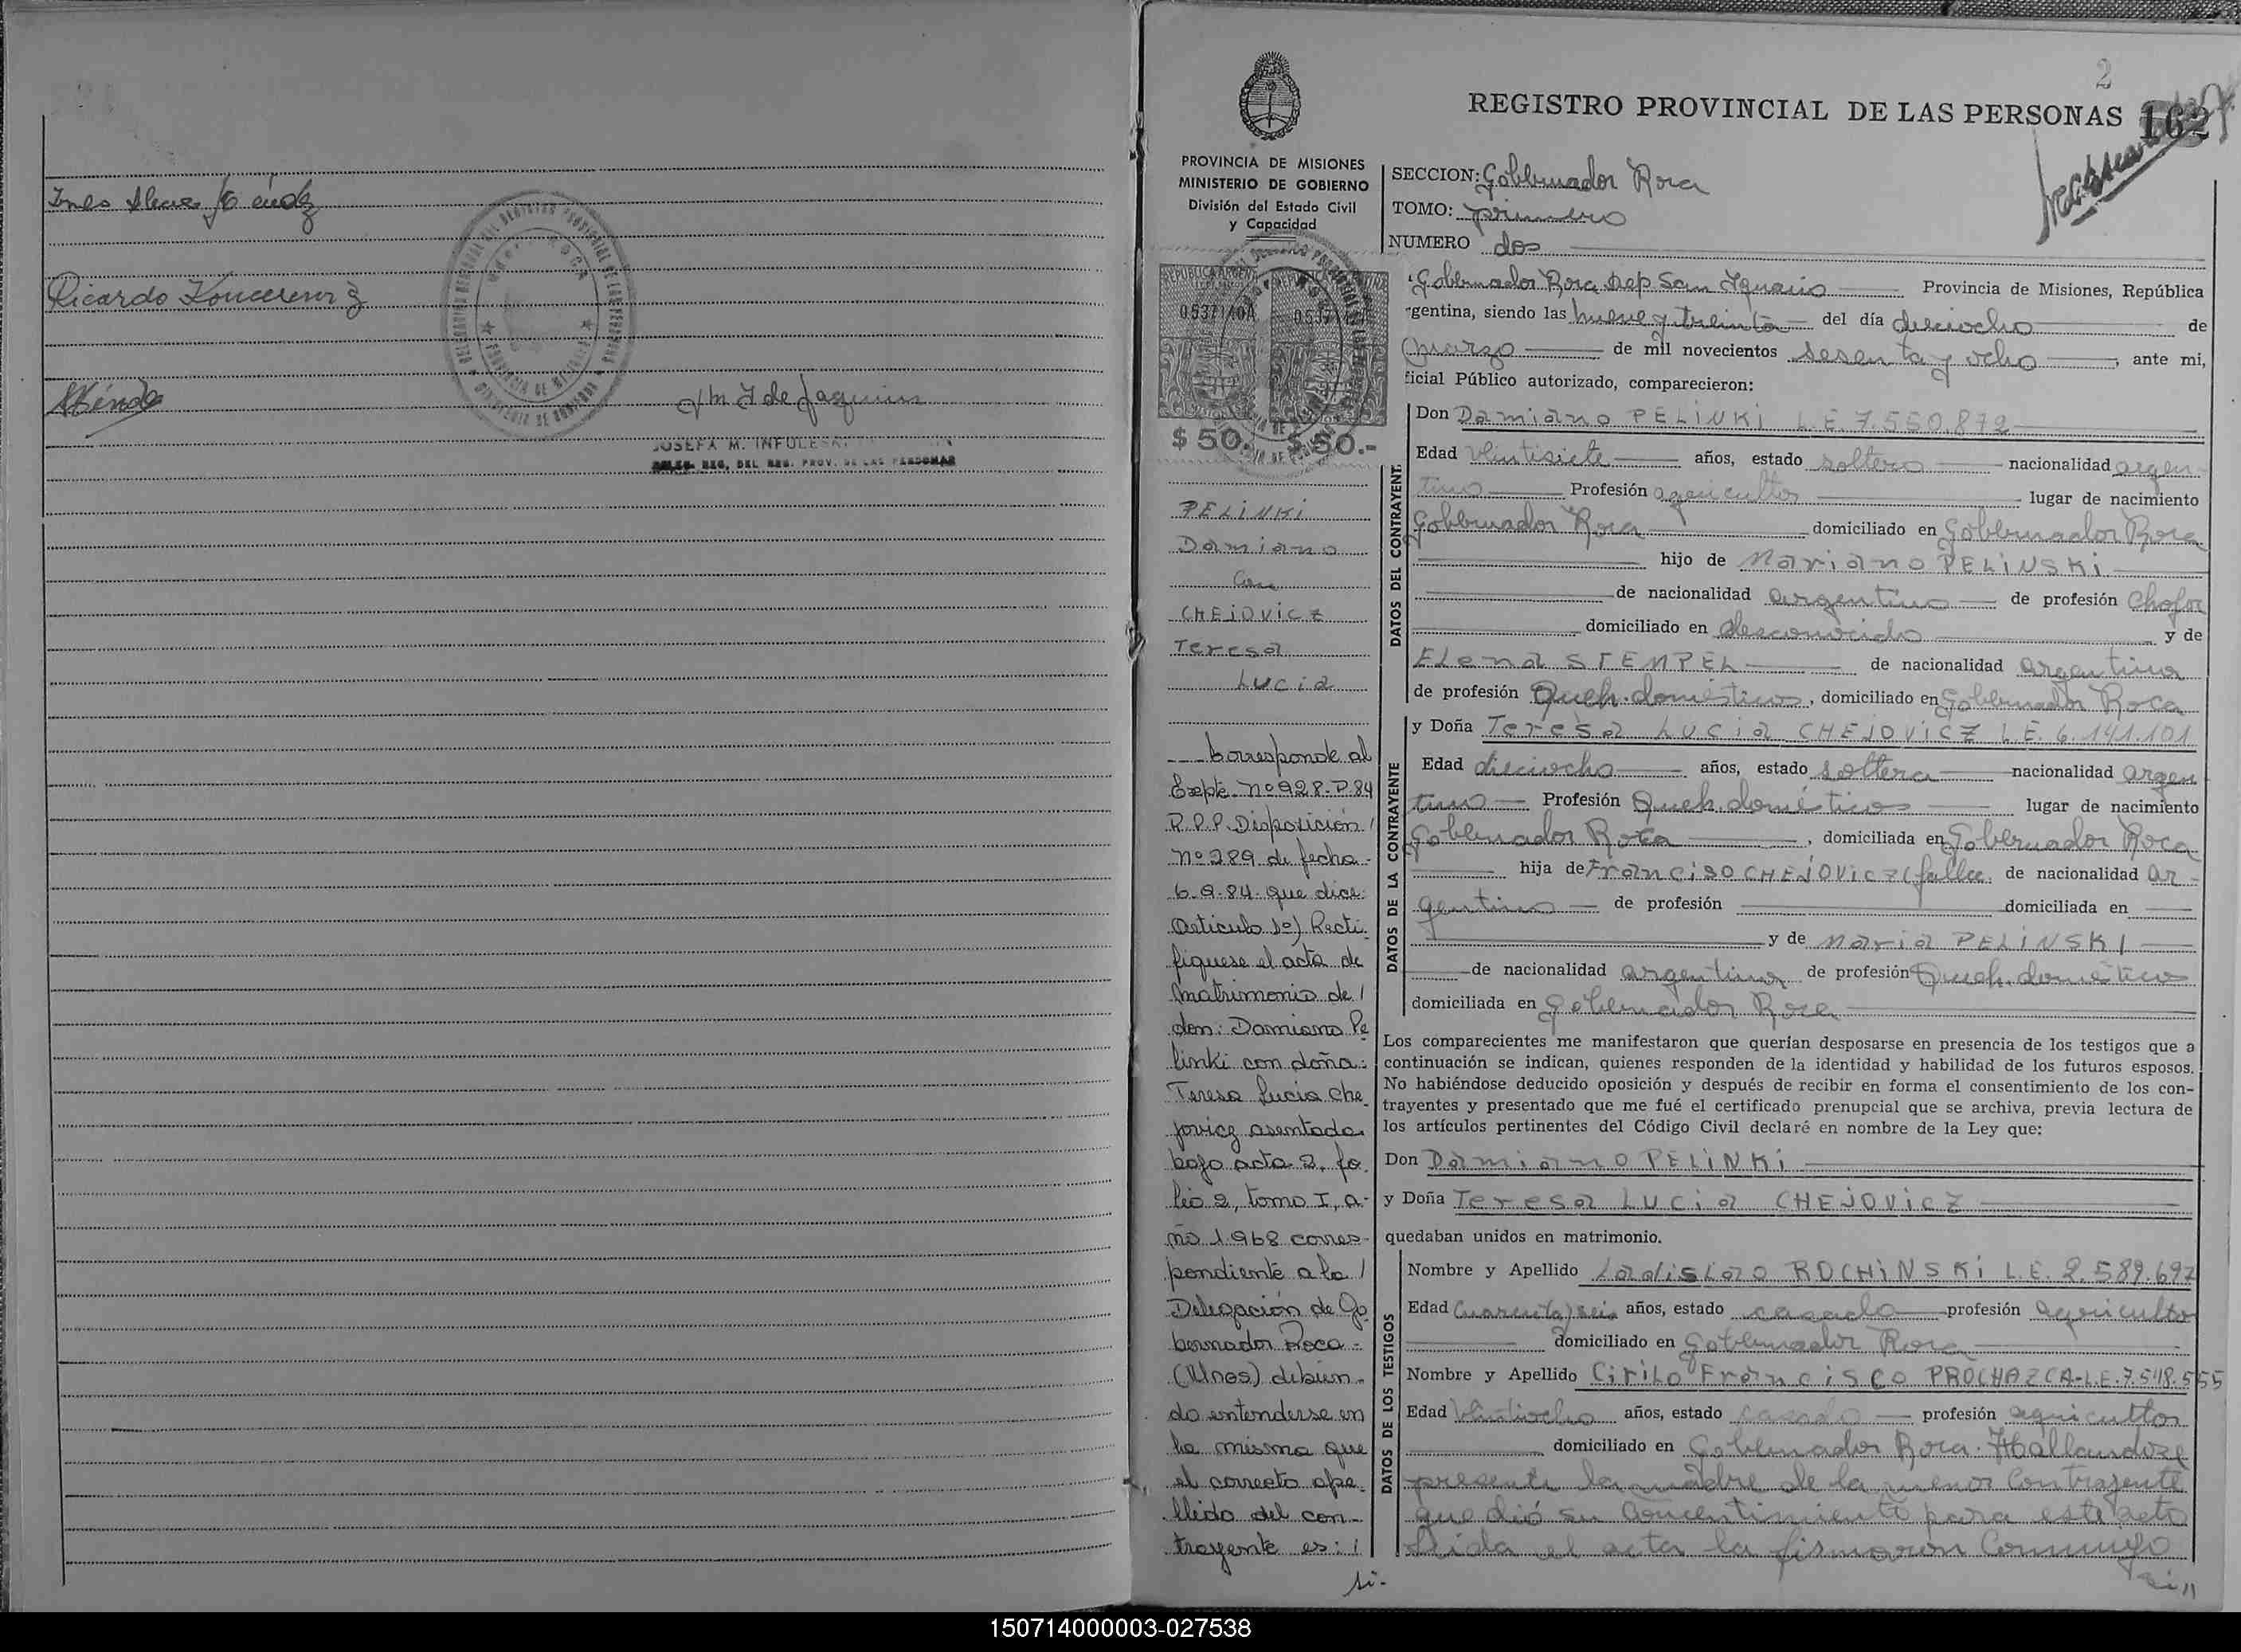 Ricardo
JOSEFA M. INFULE
DELEG. REG. DEL REG. PROV. DE LAS PERSONAS
2
REGISTRO PROVINCIAL DE LAS PERSONAS 162
PROVINCIA DE MISIONES
MINISTERIO DE GOBIERNO
División del Estado Civil
y Capacidad
$ 50.- $ 50.-
PELINKI
Damiano
Con
CHEJOVICZ
Teresa
Lucia
---Corresponde al
Expte. nº 928-P-84
R.P.P. Disposición /
nº 289 de fecha-
6-9-84- que dice:
Articulo 1º) Recti-
fíquese el acta de
matrimonio de /
don: Damiano Pe
linki con doña:
Teresa Lucia Che-
jovicz asentada
bajo acta 2, fo-
lio 2, tomo I, a-
ño 1.968 corres-
pondiente a la /
Delegación de Go
bernador Roca-
(Mnes) debien-
do entenderse en
la misma que
el correcto ape-
llido del con-
trayente es: /
si-
SECCION: Gobernador Roca
TOMO: primero
NUMERO dos
Gobernador Roca Dep San Ignacio Provincia de Misiones, República
rgentina, siendo las nueve y treinta del día dieciocho de
marzo de mil novecientos sesenta y ocho, ante mi,
ficial Público autorizado, comparecieron:
DATOS DEL CONTRAYENT.
Don Damiano PELINKI L.E. 7.550.872
Edad veintisiete años, estado soltero nacionalidad argen-
tino Profesión agricultor lugar de nacimiento
Gobernador Roca domiciliado en Gobernador Roca
hijo de Mariano PELINSKI
de nacionalidad argentino de profesión Chofer
domiciliado en desconocido y de
Elena STEMPEL de nacionalidad argentina
de profesión Queh. domésticos, domiciliado en Gobernador Roca
DATOS DE LA CONTRAYENTE
y Doña Teresa Lucia CHEJOVICZ L.E. 6.141.101
Edad dieciocho años, estado soltera nacionalidad argen
tina Profesión Queh. domésticos lugar de nacimiento
Gobernador Roca, domiciliada en Gobernador Roca
hija de Franciso CHEJOVICZ (fallec. de nacionalidad ar-
gentino de profesión domiciliada en
y de Maria PELINSKI
de nacionalidad argentina de profesión Queh. doméstico
domiciliada en Gobernador Roca
Los comparecientes me manifestaron que querían desposarse en presencia de los testigos que a
continuación se indican, quienes responden de la identidad y habilidad de los futuros esposos.
No habiéndose deducido oposición y después de recibir en forma el consentimiento de los con-
trayentes y presentado que me fué el certificado prenupcial que se archiva, previa lectura de
los artículos pertinentes del Código Civil declaré en nombre de la Ley que:
Don Damiano PELINKI
y Doña Teresa Lucia CHEJOVICZ
quedaban unidos en matrimonio.
DATOS DE LOS TESTIGOS
Nombre y Apellido Ladislao ROCHINSKI L.E. 2.589.697
Edad Cuarenta y seis años, estado casado profesión agricultor
domiciliado en Gobernador Roca
Nombre y Apellido Cirilo Francisco PROCHAZCA-L.E. 7.548.555
Edad Veintiocho años, estado casado profesión agricultor
domiciliado en Gobernador Roca. Hallandose
presente la madre de la menor Contrayente
que dió su Concentimiento para este acto
Leida el acta la firmaron Conmigo
150714000003-027538